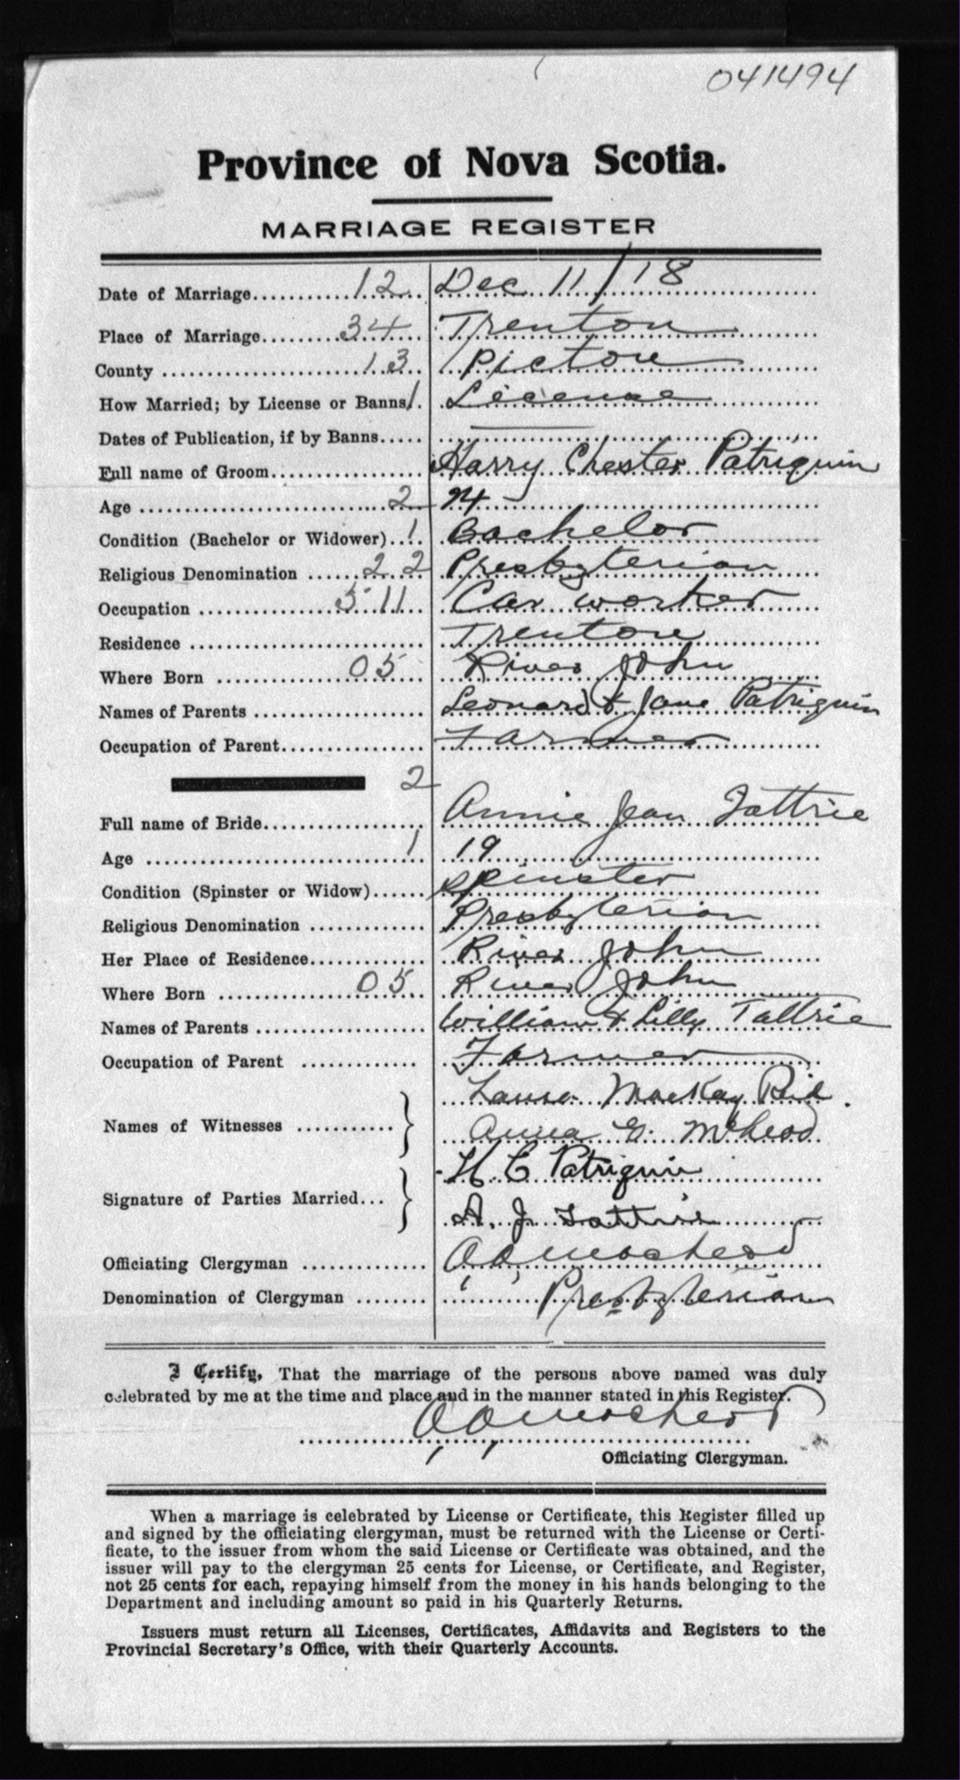 041494
Province of Nova Scotia.
MARRIAGE REGISTER
Date of Marriage........... 12 Dec 11/18
Place of Marriage......... 34 Trenton
County .................... 13 Pictou
How Married; by License or Banns. 1 License
Dates of Publication, if by Banns..... ———
Full name of Groom................ Harry Chester Patriquin
Age ......................... 2 24
Condition (Bachelor or Widower).. 1 Bachelor
Religious Denomination ...... 22 Presbyterian
Occupation .............. 511 Car worker
Residence ........................ Trenton
Where Born ............. 05 River John
Names of Parents .................. Leonard & Jane Patriquin
Occupation of Parent............... Farmer
2
Full name of Bride................. Annie Jean Tattrie
Age ......................... 1 19
Condition (Spinster or Widow)...... Spinster
Religious Denomination ............ Presbyterian
Her Place of Residence............. River John
Where Born .............. 05 River John
Names of Parents .................. William & Lilly Tattrie
Occupation of Parent .............. Farmer
Names of Witnesses ........... } MacKay
Anna G. McLeod
Signature of Parties Married... } H C Patriquin
A. J. Tattrie
Officiating Clergyman .............
Denomination of Clergyman ........ Presbyterian
I Certify, That the marriage of the persons above named was duly
celebrated by me at the time and place and in the manner stated in this Register.
Officiating Clergyman.
When a marriage is celebrated by License or Certificate, this Register filled up
and signed by the officiating clergyman, must be returned with the License or Certi-
ficate, to the issuer from whom the said License or Certificate was obtained, and the
issuer will pay to the clergyman 25 cents for License, or Certificate, and Register,
not 25 cents for each, repaying himself from the money in his hands belonging to the
Department and including amount so paid in his Quarterly Returns.
Issuers must return all Licenses, Certificates, Affidavits and Registers to the
Provincial Secretary's Office, with their Quarterly Accounts.